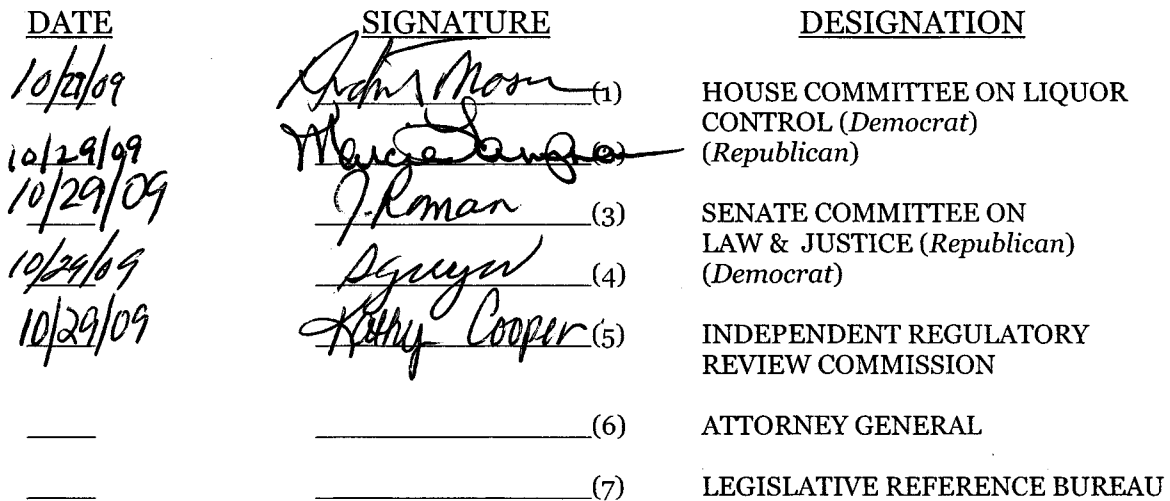 DATE SIGNATURE DESIGNATION
10/29/09 (1) HOUSE COMMITTEE ON LIQUOR
CONTROL (Democrat)
10/29/09 Marcia (2) (Republican)
10/29/09 J. Roman (3) SENATE COMMITTEE ON
LAW & JUSTICE (Republican)
10/29/09 (4) (Democrat)
10/29/09 Kathy Cooper (5) INDEPENDENT REGULATORY
REVIEW COMMISSION
(6) ATTORNEY GENERAL
(7) LEGISLATIVE REFERENCE BUREAU